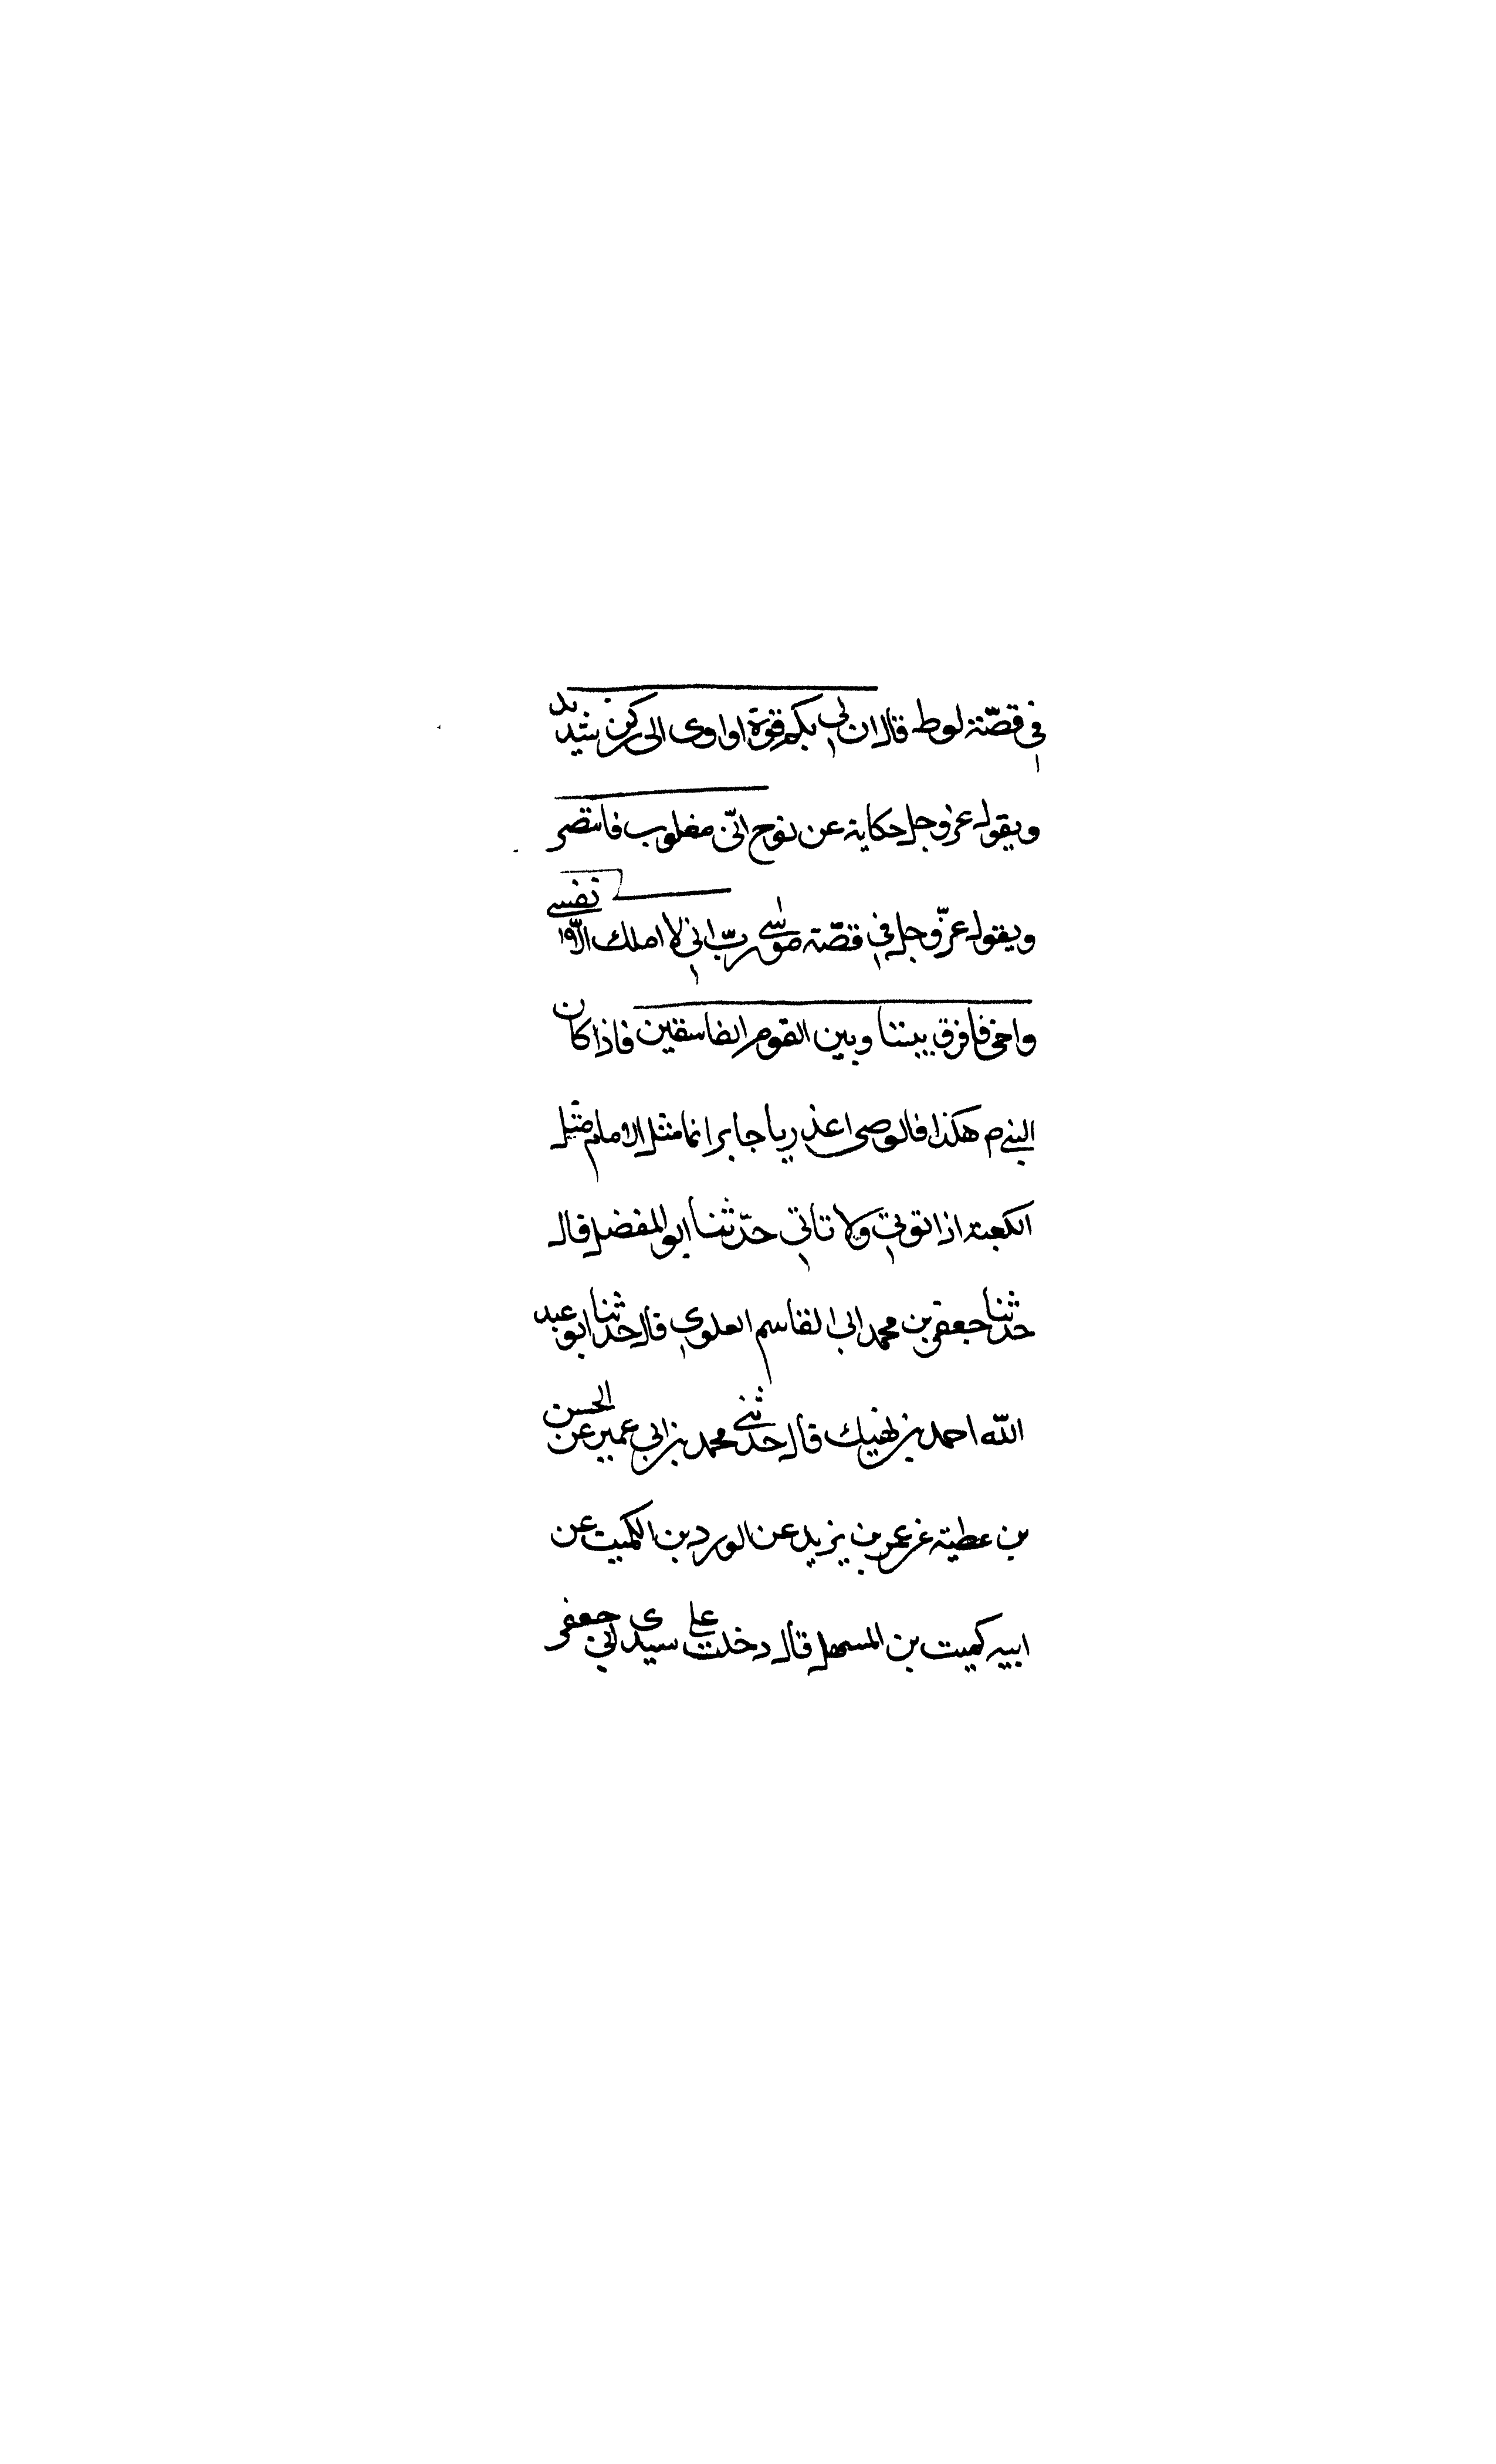 في قصّة لوط قال ان لي بكم قوة او اوى الى ركن شديد
ويقول عز وجل حكاية عن نوح انّى مغلوب فانتصر
ويقول عزّ وجل في قصّة موسى ربّ اني لا املك الّا نفسي
واخى فافرق بيننا وبين القوم الفاسقين فاذا كان
النبي م هكذا فالوصى اعذر يا جابر انما مثل الامام مثل
الكعبة اذا توتي ولا تاتي حدّثنا ابو المفضل قال
حدثنا جعفر بن محمد ابي القاسم العلوي قال حدثنا ابو عبد
الله احمد بن نهيك قال حدثني محمد بن ابي عمير عن الحسن
بن عطية عن عمر بن يزيد عن الورد بن الكميت عن
ابيه كميت بن المستهل قال دخلت على سيدي ابي جعفر